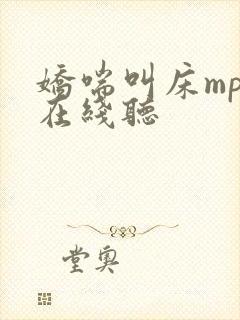 嬌喘叫床mp
在綫聽
堂奧